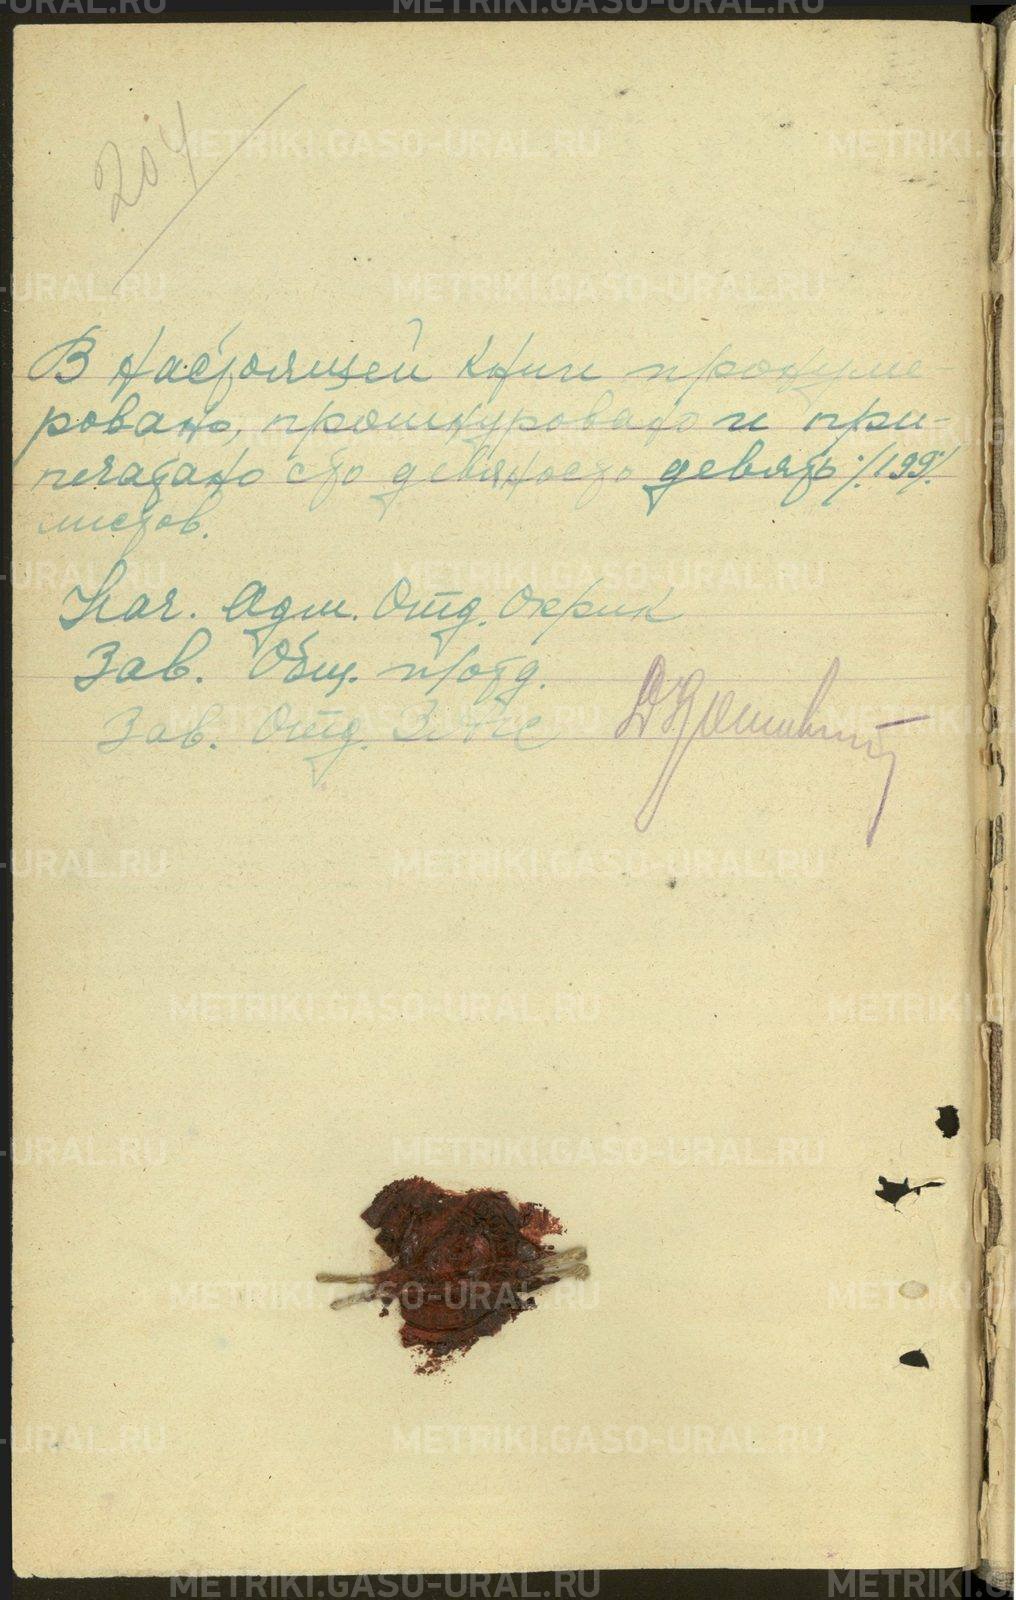 204
В настоящей книги пронуме-
ровано, прошнуровано и при-
печатано сто девяносто девять ./.199/.
листов.
Нач. Адм. Отд. Окрик
Зав. Общ. п/отд.
Зав. Отд. ЗАГС
METRIKI.GASO-URAL.RU